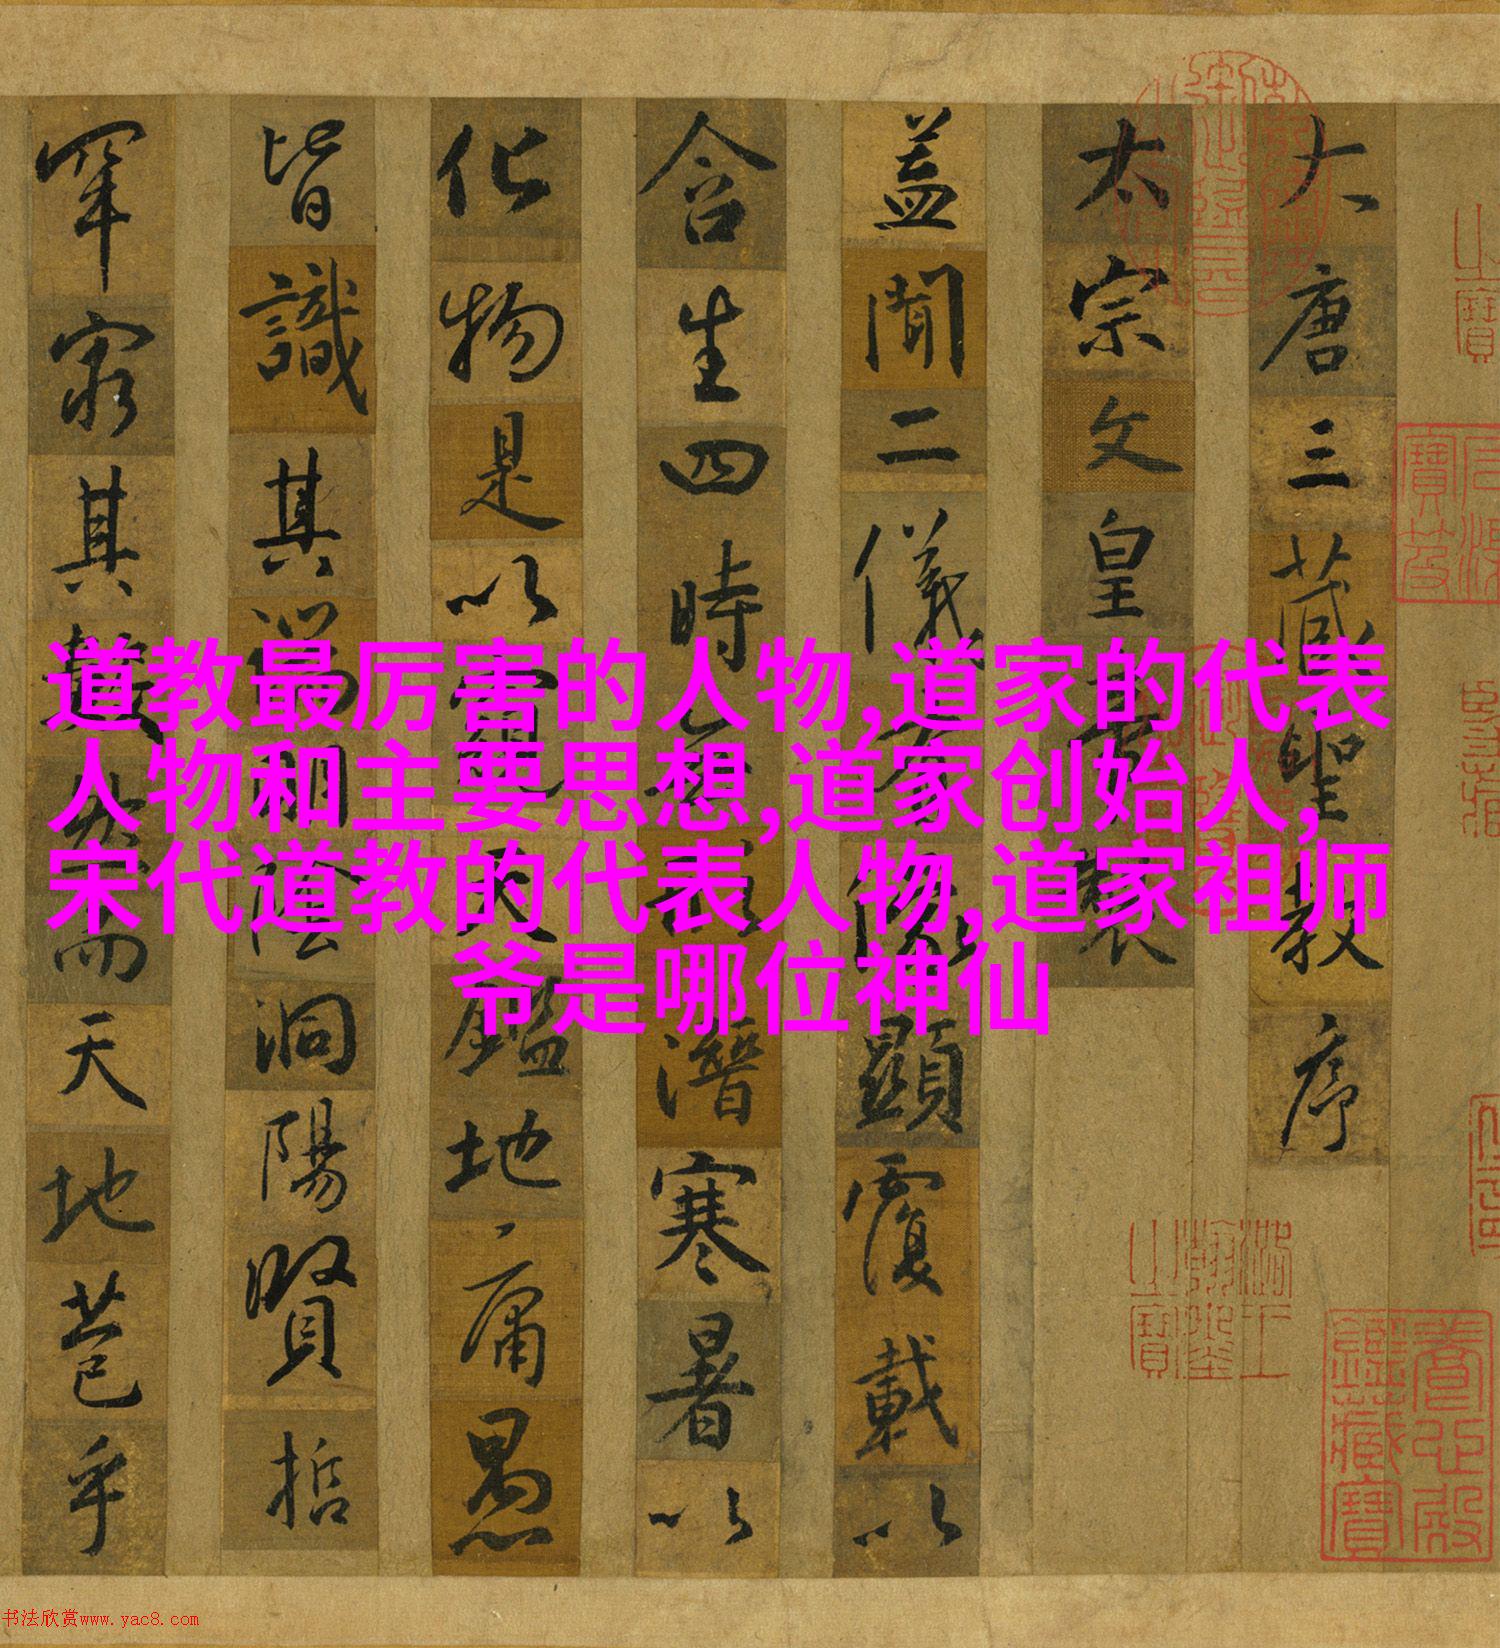 大唐三藏聖教序
太宗文皇帝製
蓋聞二儀有像顯覆載以
含生四時無形潛寒暑以
化物是以窺天鑑地庸愚
皆識其端明陰洞陽賢哲
罕窮其數然而天地苞乎
道教最厉害的人物,道家的代表
人物和主要思想,道家创始人,
宋代道教的代表人物,道家祖师
爷是哪位神仙
養心殿鑑藏寶
书法欣赏www.yac8.com